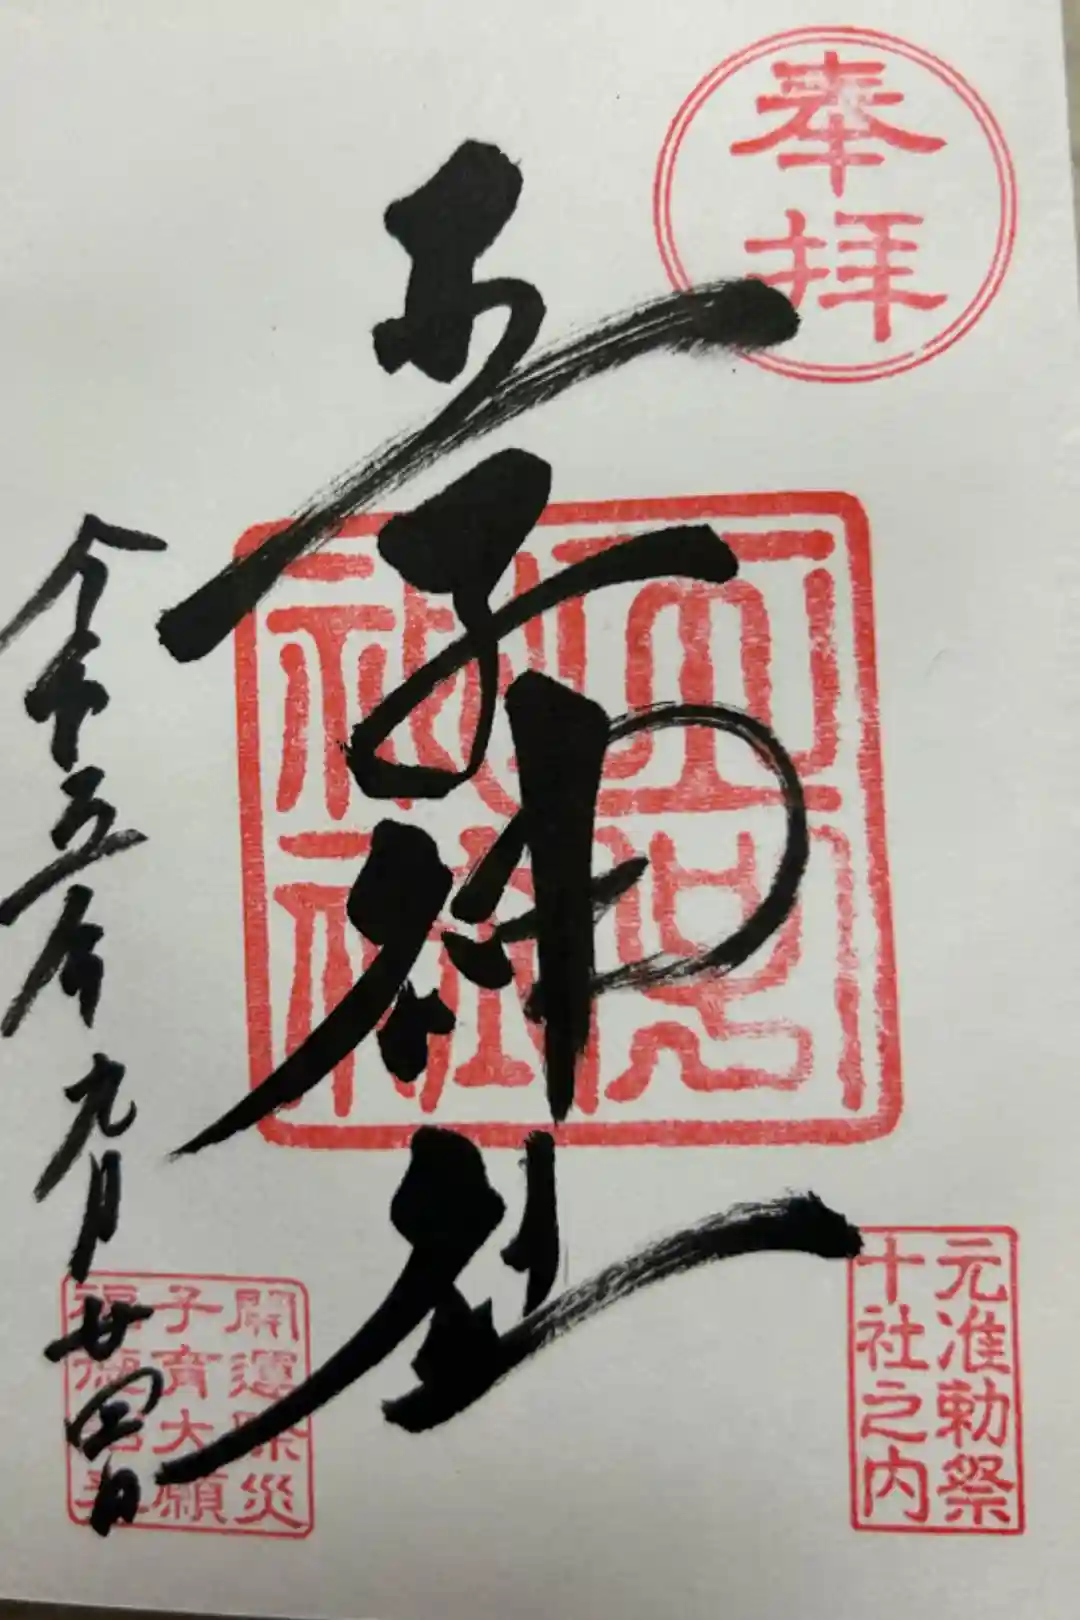 奉拝
王子神社
元准勅祭
十社之内
令和五年九月廿四日
開運除災
子育大願
福徳